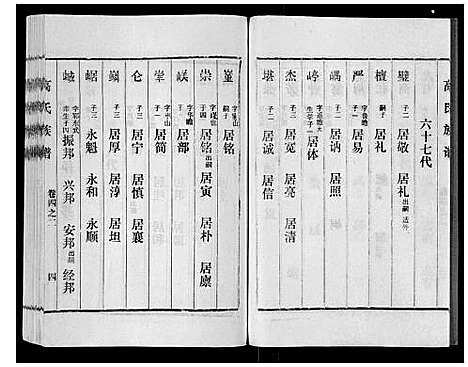 高氏族谱
六十七代
璧 子三 居敬 居礼 出嗣 适外
檀 嗣子 居礼
严 字鲁瞻 子一 居易
嵎 子二 居讷 居照
崞 居体
杰 子三 居宽 居亮 居清
堪 子二 居诚 居信
嶉 嗣子 居铭
崇 子四 居铭 出嗣 居寅 居朴 居廪
嵄 字华瞻 子一 居部
峷 子一 居简
仑 子三 居宁 居慎 居襄
巅 子三 居厚 居淳 居坦
崌 子三 永魁 永和 永顺
峸 子四 振邦 兴邦 安邦 出嗣 经邦
高氏族谱
卷四之二
四